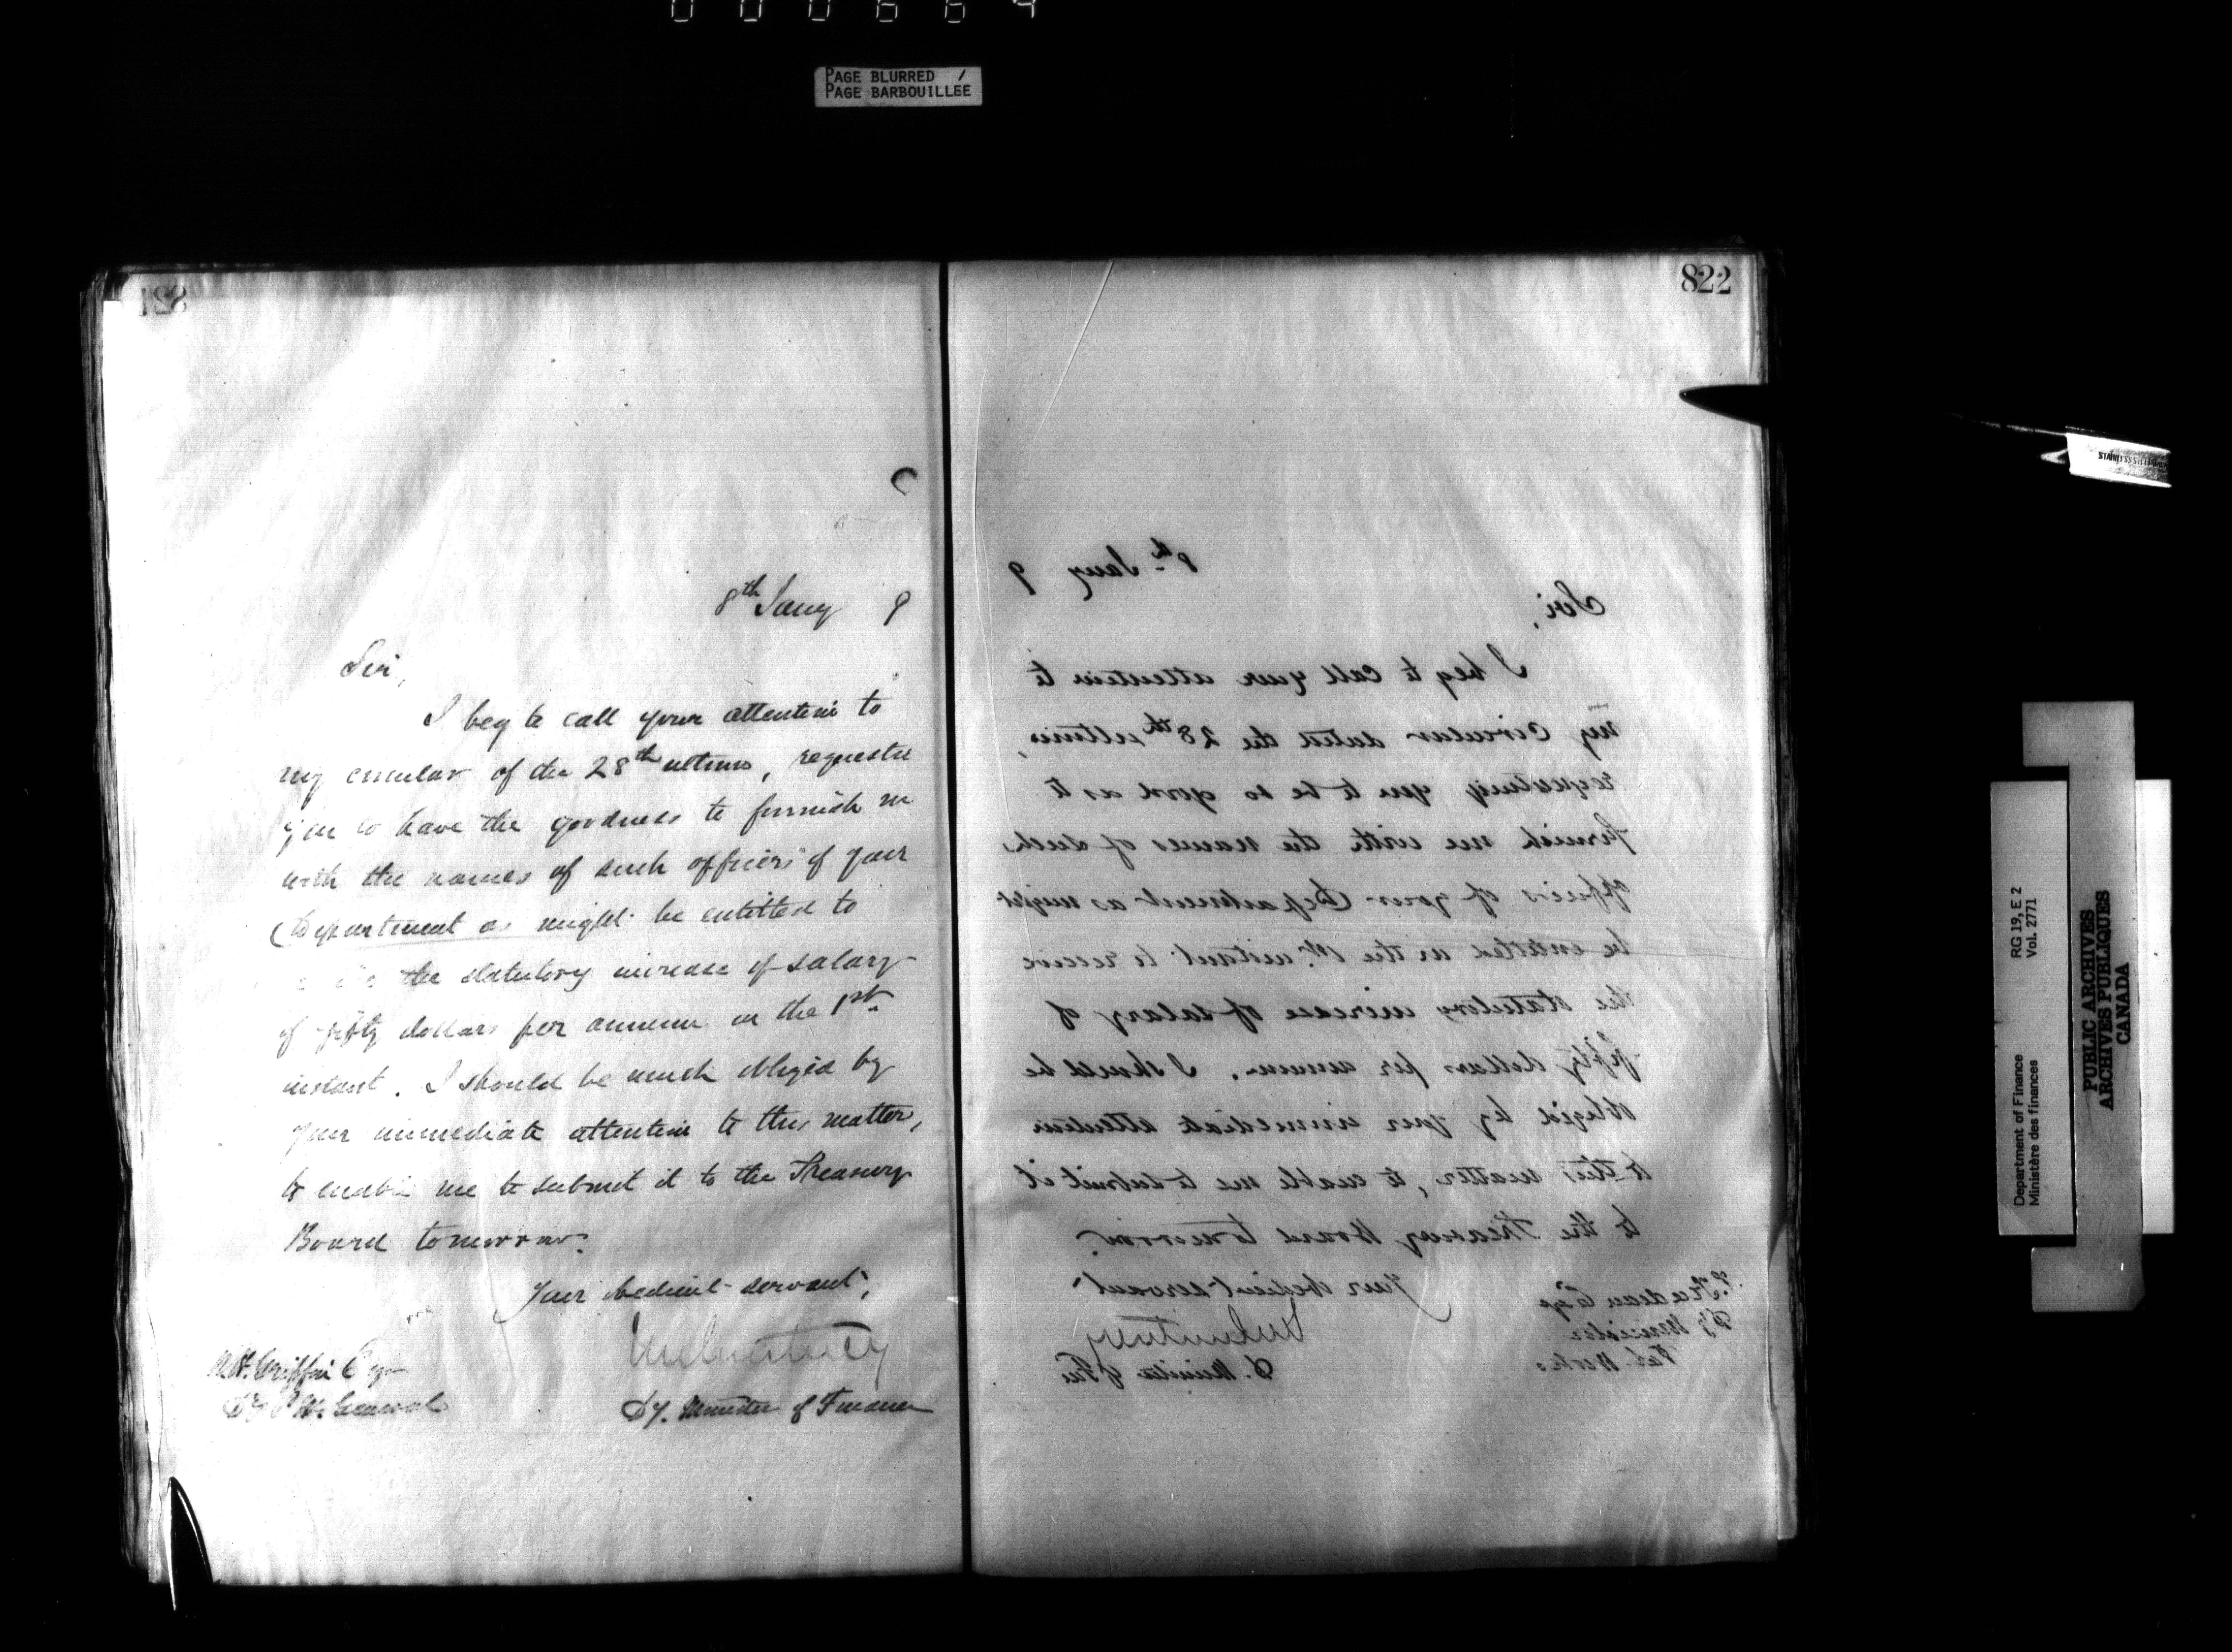 000664
PAGE BLURRED /
PAGE BARBOUILLÉE
821
8th Jany 9
Sir,
I beg to call your attention to
my circular of the 28th ultimo, requesti
you to have the goodness to furnish m
with the names of such officers of your
Department as might be entitled to
the statutory increase of salary
of fifty dollars per annum on the 1st
instant. I should be much obliged by
your immediate attention to this matter,
to enable me to submit it to the Treasury
Board tomorrow.
Your obedient servant,
W. H. Griffin Esq
Dy P. M. General
Dy. Minister of Finance
822
8th Jany 9
Sir,
I beg to call your attention to
my circular dated the 28th ultimo,
requesting you to be so good as to
furnish me with the names of such
officers of your Department as might
be entitled on the 1st instant to receive
the statutory increase of salary of
fifty dollars per annum. I should be
obliged by your immediate attention
to this matter, to enable me to submit it
to the Treasury Board tomorrow.
Your obedient servant
D. Minister of Fin
T. Trudeau Esq
Dy Minister
Pub. Works
STAINLESS
Department of Finance
Ministère des finances
RG 19, E 2
Vol. 2771
PUBLIC ARCHIVES
ARCHIVES PUBLIQUES
CANADA